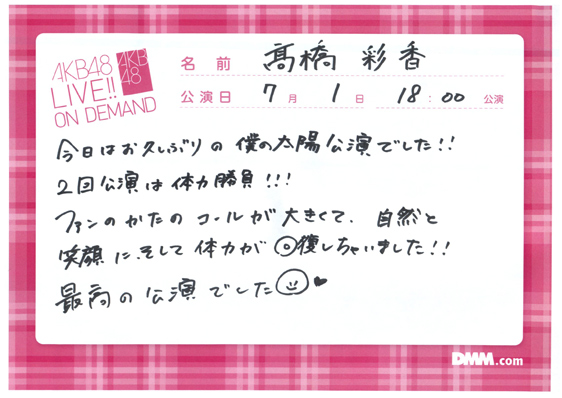 AKB48
LIVE!!
ON DEMAND
AKB
48
名前 髙橋 彩香
公演日 7月 1日 18:00 公演
今日はお久しぶりの僕の太陽公演でした!!
2回公演は体力勝負!!!
ファンのかたのコールが大きくて、自然と
笑顔に、そして体力が回復しちゃいました!!
最高の公演でした
DMM.com